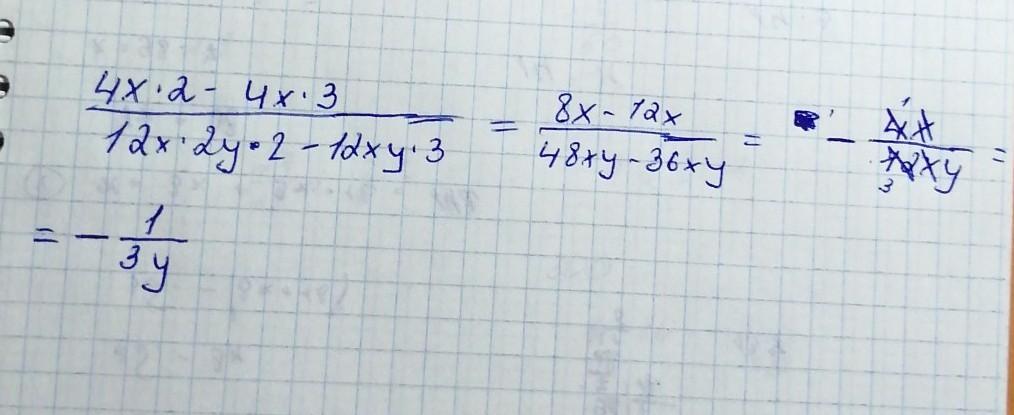 4x·2 - 4x·3 / 12x·2y·2 - 12xy·3 = 8x - 12x / 48xy - 36xy = - 4x / 12xy =
= - 1 / 3y